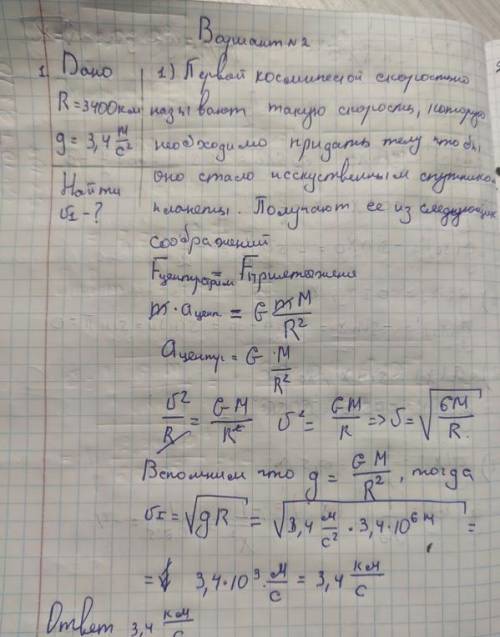 Вариант №2
1. Дано 1) Первой космической скоростью
R = 3400 км называют такую скорость, которую
g = 3,4 м/с² необходимо придать телу чтобы
Найти оно стало исскуственным спутником
υI - ? планеты. Получают ее из следующих
соображений
Fцентрарим = Fпритяжения
m · aцент = G mM/R²
aцентр = G · M/R²
υ²/R = GM/R² υ² = GM/R => υ = √(GM/R)
Вспомним что g = GM/R², тогда
υI = √(gR) = √(3,4 м/с² · 3,4·10⁶ м) =
= 3,4·10³ · м/с = 3,4 км/с
Ответ 3,4 км/с